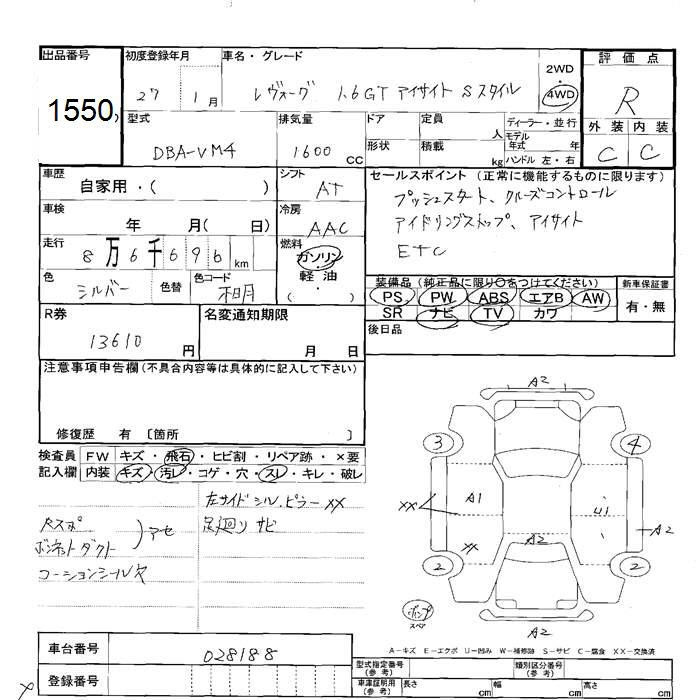 出品番号
1550
初度登録年月
27 1月
車名・グレード
レヴォーグ 1.6GT アイサイト Sスタイル
2WD
・
4WD
評価点
R
外装 内装
C C
型式
DBA-VM4
排気量
1600 CC
ドア
定員 人
形状
積載 kg
ディーラー・並行
モデル
年式 年
ハンドル 左・右
車歴
自家用・( )
シフト
AT
セールスポイント (正常に機能するものに限ります)
プッシュスタート、クルーズコントロール
アイドリングストップ、アイサイト
ETC
車検
年 月( 日)
冷房
AAC
走行
8万6千696km
燃料
ガソリン
・
軽油
( ・ )
色
シルバー
色替
色コード
装備品 (純正品に限り○をつけてください)
PS PW ABS エアB AW
SR ナビ TV カワ
新車保証書
有・無
後日品
R券
13610 円
名変通知期限
月 日
注意事項申告欄(不具合内容等は具体的に記入して下さい)
修復歴 有 〔箇所 〕
検査員
記入欄
FW キズ・飛石・ヒビ割・リペア跡・×要
内装 キズ・汚レ・コゲ・穴・スレ・キレ・破レ
左サイドシル、ピラーXX
足廻りサビ
Rスポ
ボンネットダクト
アセ
コーションシール欠
A2
3
4
XX
A1
U1
XX
A2
A2
2
2
ポンプ
スペア
A2
A-キズ E-エクボ U-凹み W-補修跡 S-サビ C-腐食 XX-交換済
車台番号
028188
登録番号
型式指定番号
(参考)
類別区分番号
(参考)
車庫証明用
(参考)
長さ cm
幅 cm
高さ cm